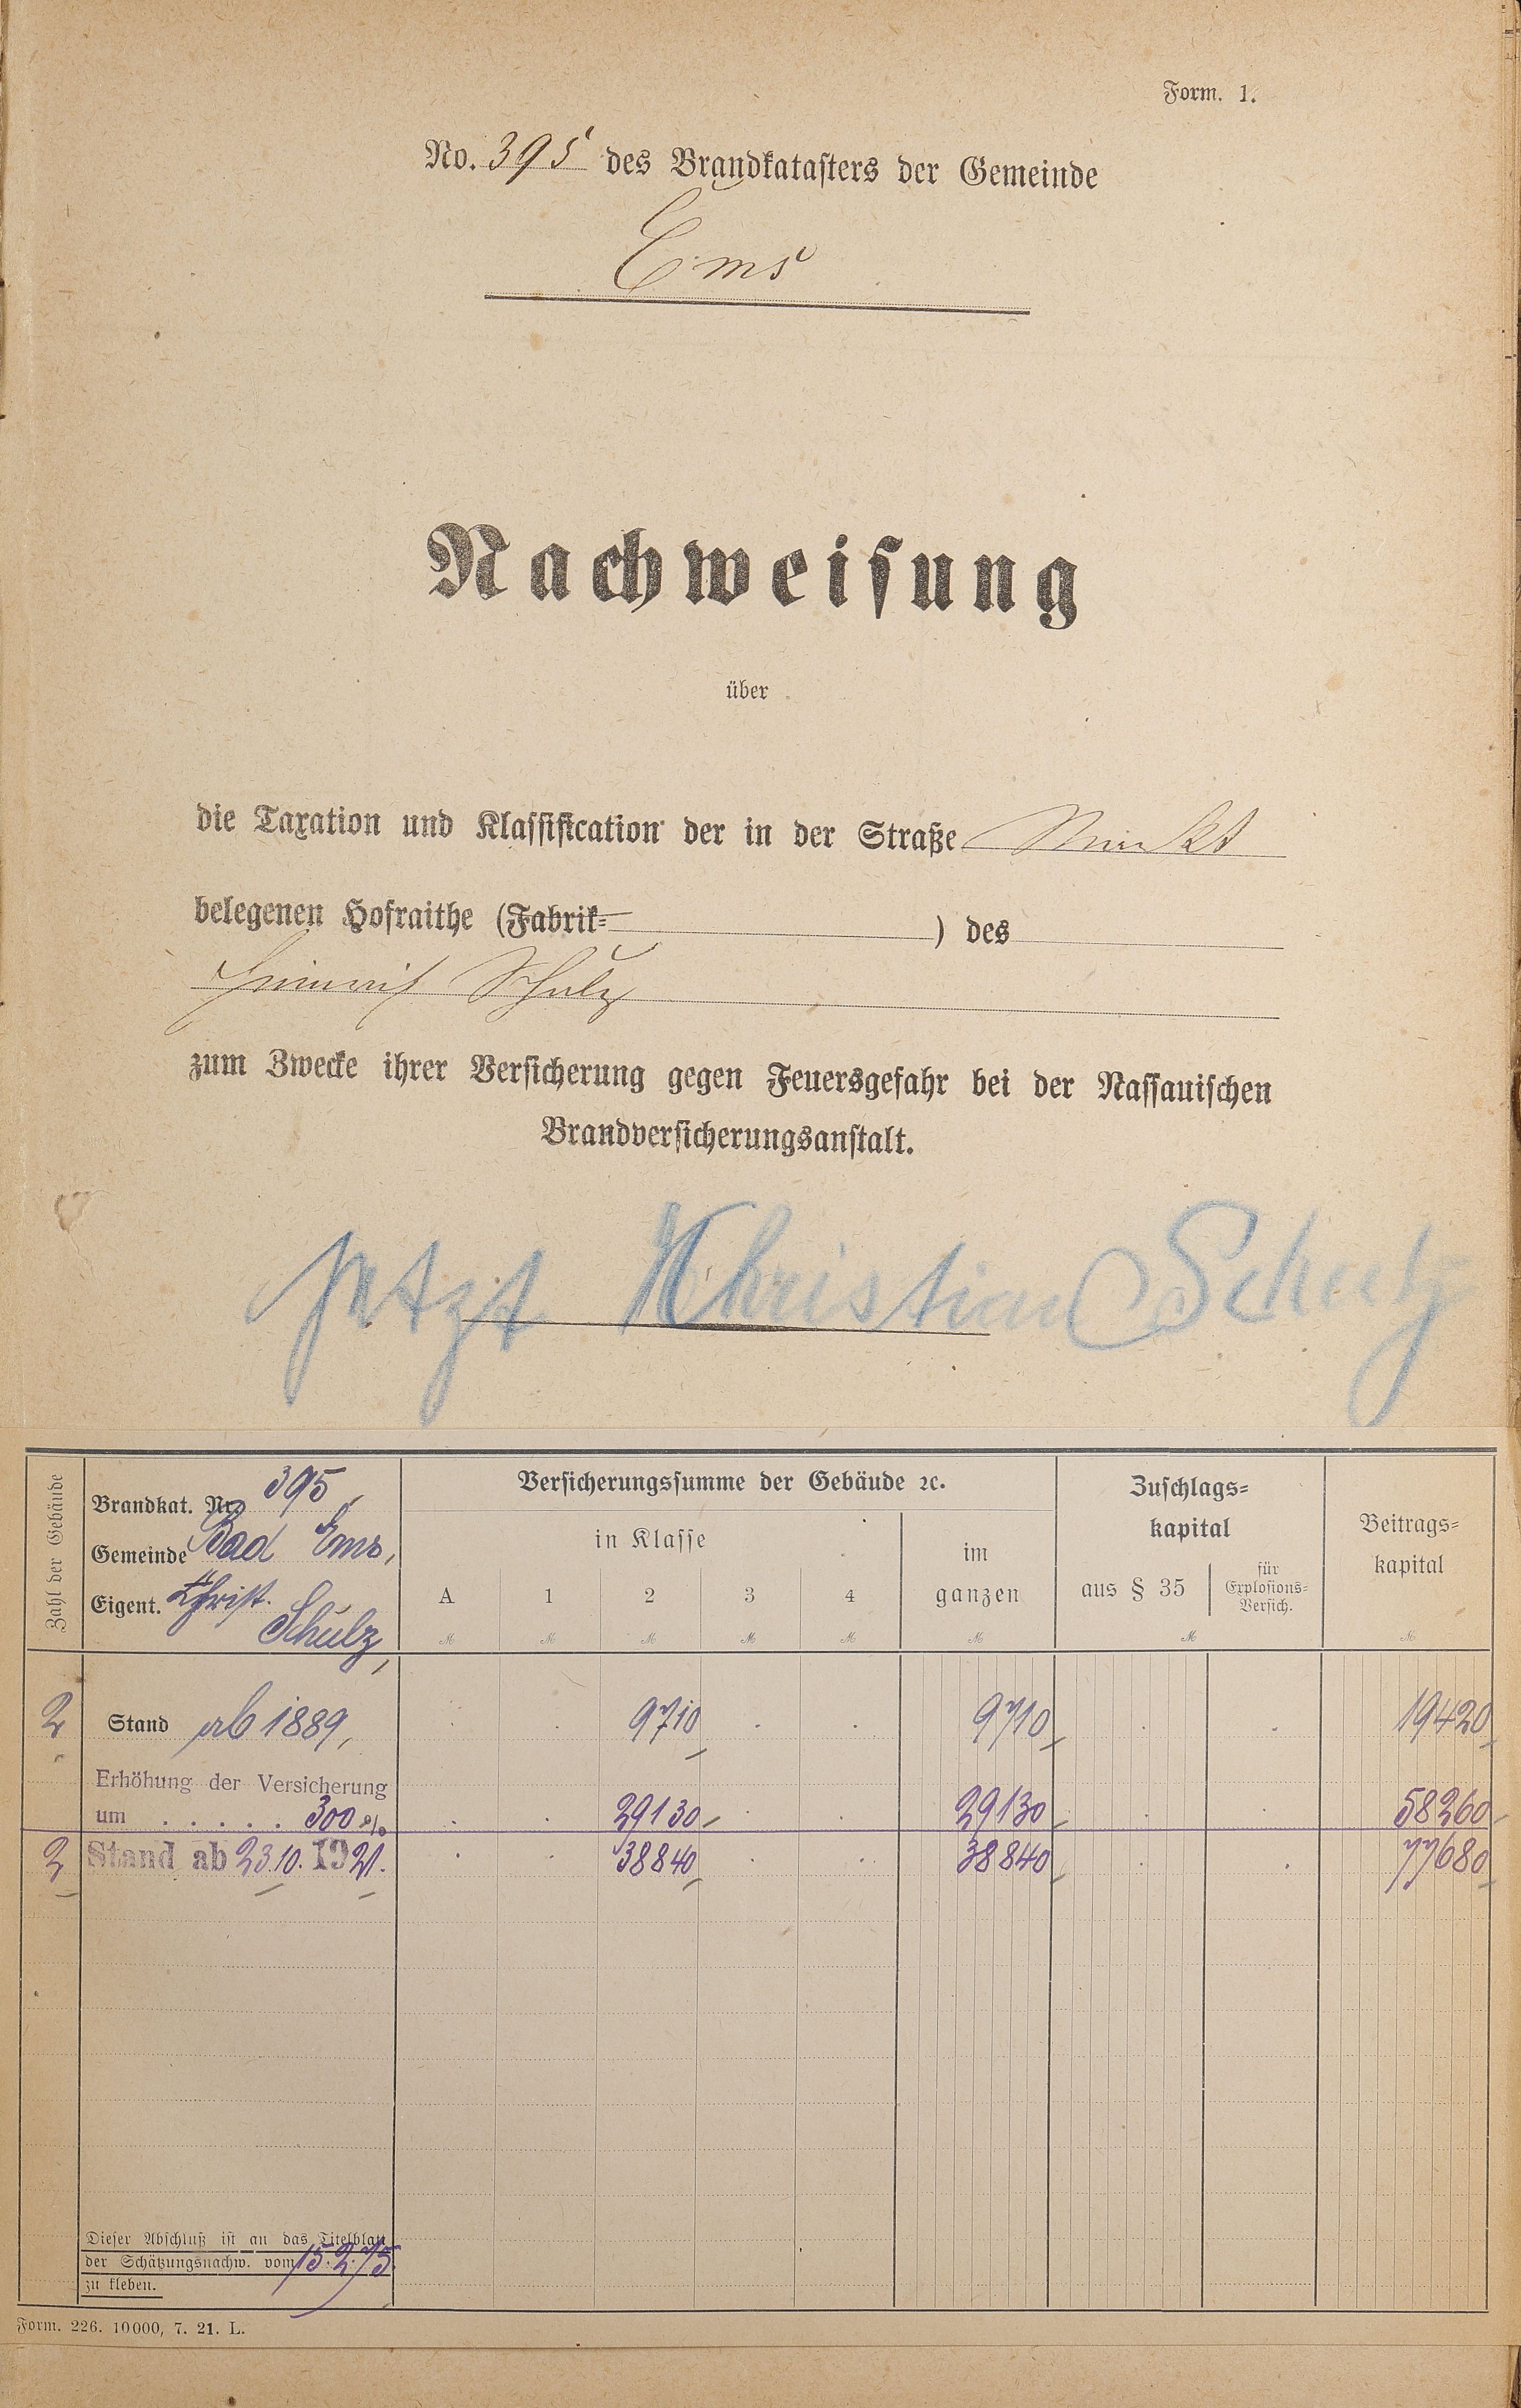 Form. 1.
No. 395 des Brandkatasters der Gemeinde
Ems
Nachweisung
über
die Taxation und Klassification der in der Straße Markt
belegenen Hofraithe (Fabrik=) des
Heinrich Schulz
zum Zwecke ihrer Versicherung gegen Feuersgefahr bei der Nassauischen
Brandversicherungsanstalt.
jetzt Christian Schulz
Zahl der Gebäude
Brandkat. Nr. 395,
Gemeinde Bad Ems,
Eigent. Christ.
Schulz,
Versicherungssumme der Gebäude ꝛc.
in Klasse
A 1 2 3 4
im
ganzen
ℳ ℳ ℳ ℳ ℳ ℳ
Zuschlags=
kapital
aus § 35
für
Explosions=
Versich.
ℳ
Beitrags=
kapital
ℳ
2 Stand ab 1889, 9710 9710 19420
Erhöhung der Versicherung
um . . . . . 300 % 29130 29130 58260
2 Stand ab 23.10.1921. 38840 38840 77680
Dieser Abschluß ist an das Titelblatt
der Schätzungsnachw. vom 15.2.75.
zu kleben.
Form. 226. 10000, 7. 21. L.